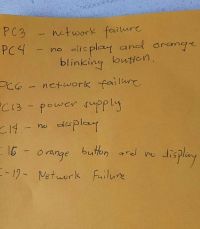 PC3 - network failure
PC4 - no display and orange
blinking button.
PC6 - network failure
PC13 - power supply
C14 - no display
C16 - orange button and no display
C-19- Network Failure